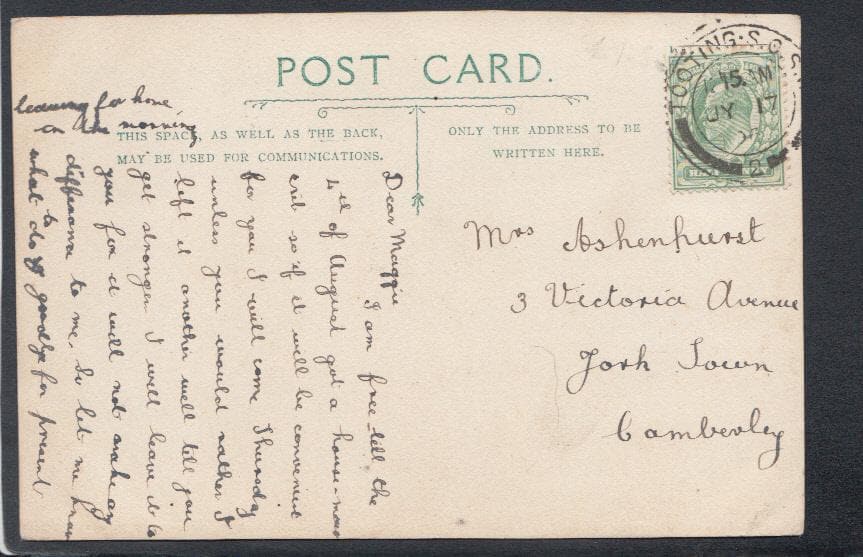 POST CARD.
THIS SPACE, AS WELL AS THE BACK,
MAY BE USED FOR COMMUNICATIONS.
ONLY THE ADDRESS TO BE
WRITTEN HERE.
TOOTING. S.O.
15 AM
JY 17
Mrs Ashenhurst
3 Victoria Avenue
York Town
Camberley
Dear Maggie
I am free till the
4th of August got a house-
so if it will be convenient
for you I will come Thursday
unless you would rather I
left it another well tell you
get stronger I will leave it to
you for it will not make any
difference to me. So let me know
what to do goodbye for present
leaving for home
in the morning